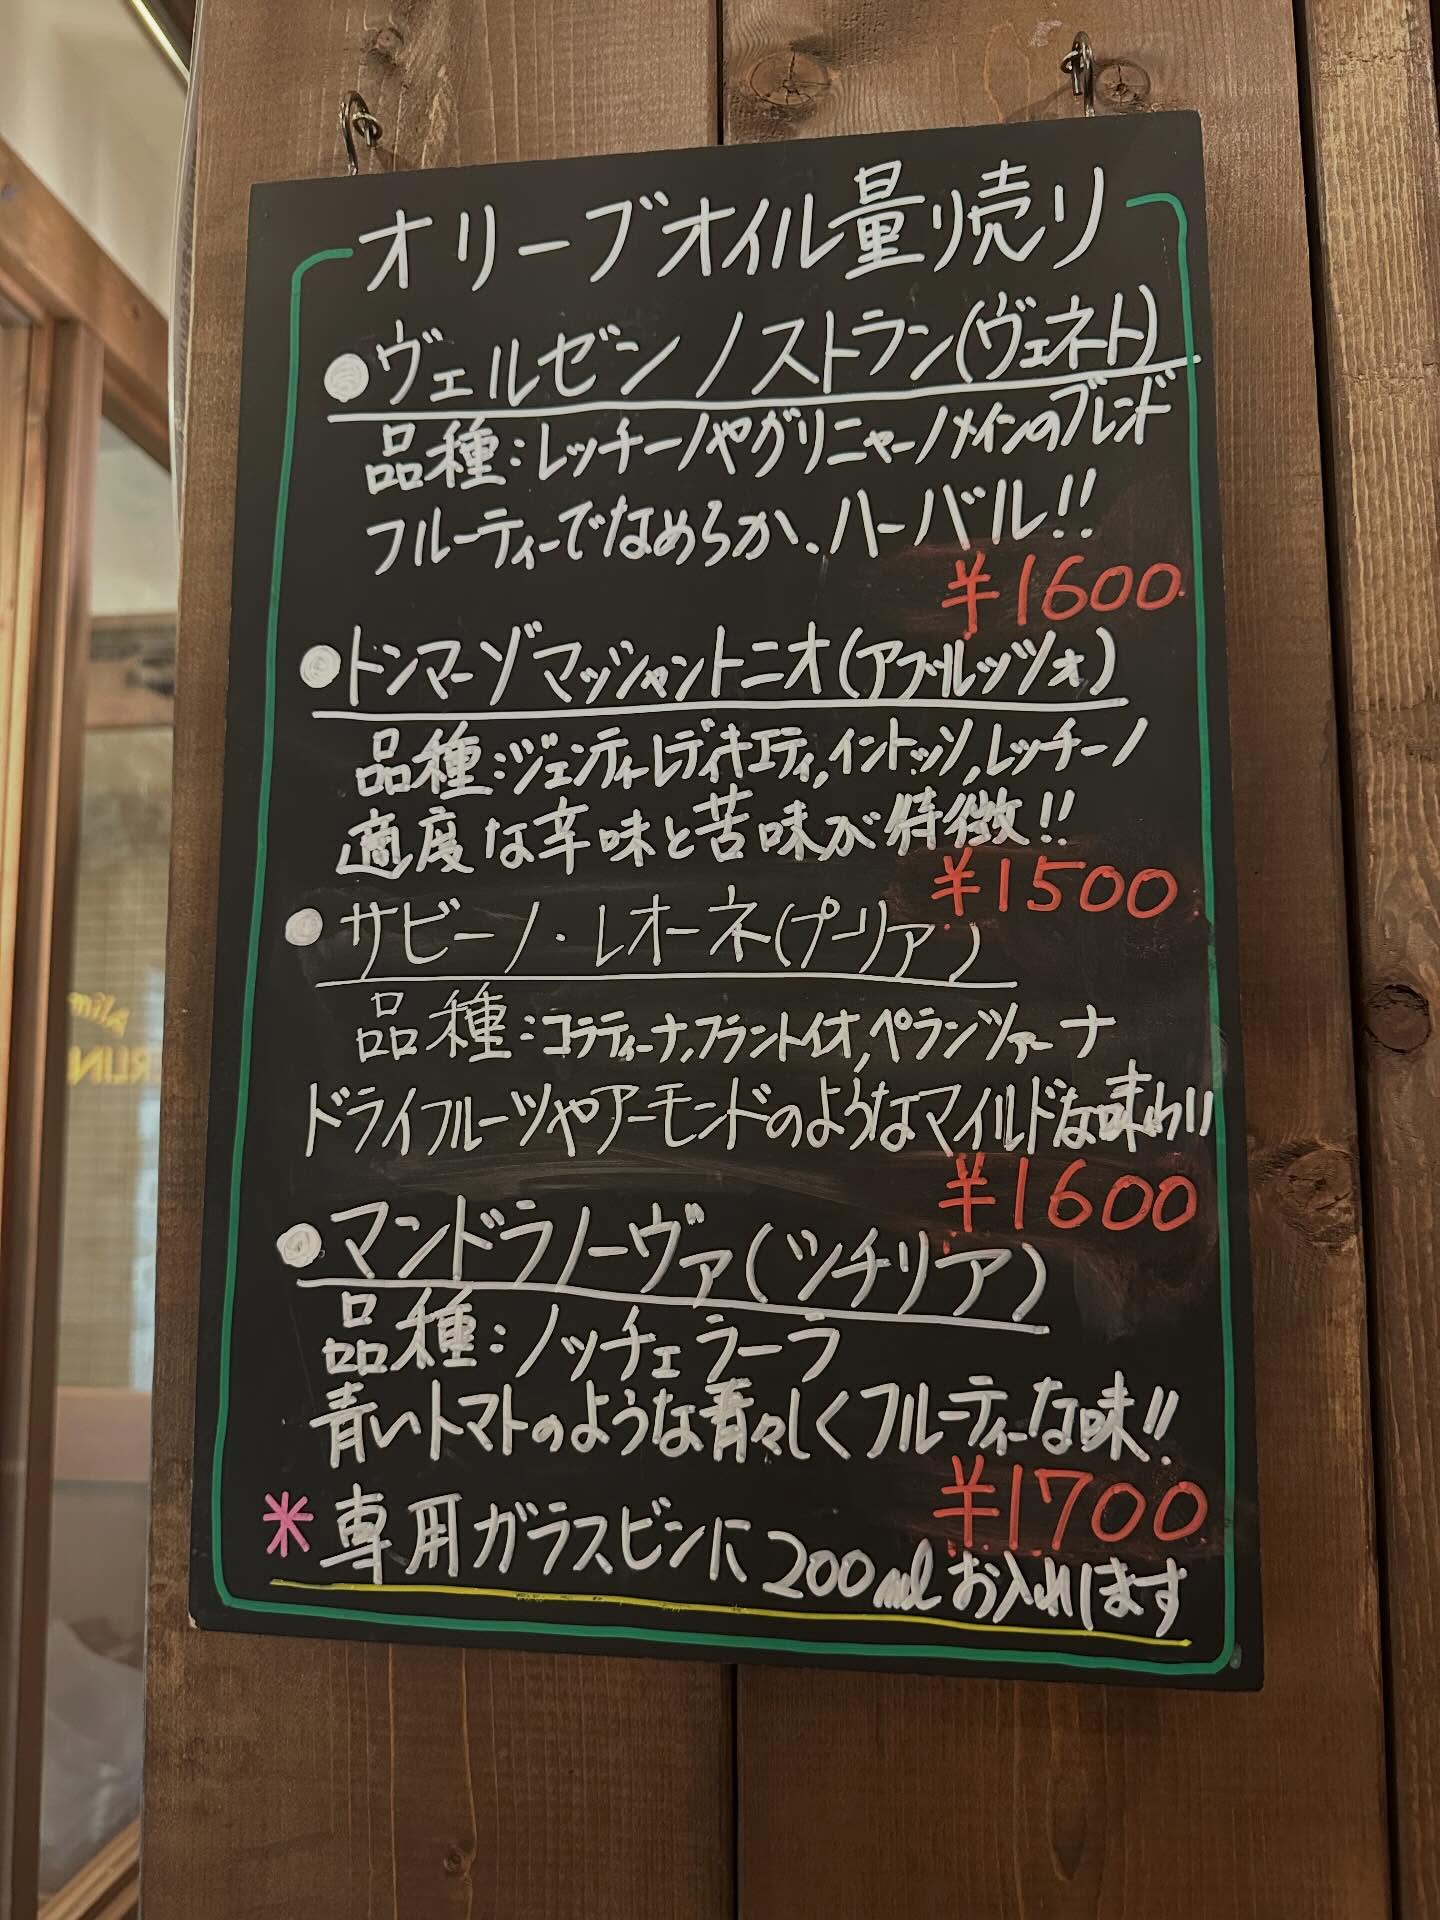 オリーブオイル量り売り
●ヴェルゼン ノストラン(ヴェネト)
品種:レッチーノやグリニャーノメインのブレンド
フルーティーでなめらか、ハーバル!!
¥1600
●トンマーゾ マッシャントニオ(アブルッツォ)
品種:ジェンティレディキエティ,イントッソ,レッチーノ
適度な辛味と苦味が特徴!!
¥1500
●サビーノ・レオーネ(プーリア)
品種:コラティーナ,フラントイオ,ペランツァーナ
ドライフルーツやアーモンドのようなマイルドな味わい
¥1600
●マンドラノーヴァ(シチリア)
品種:ノッチェラーラ
青いトマトのような青々しくフルーティーな味!!
¥1700
*専用ガラスビンに200mlお入れします